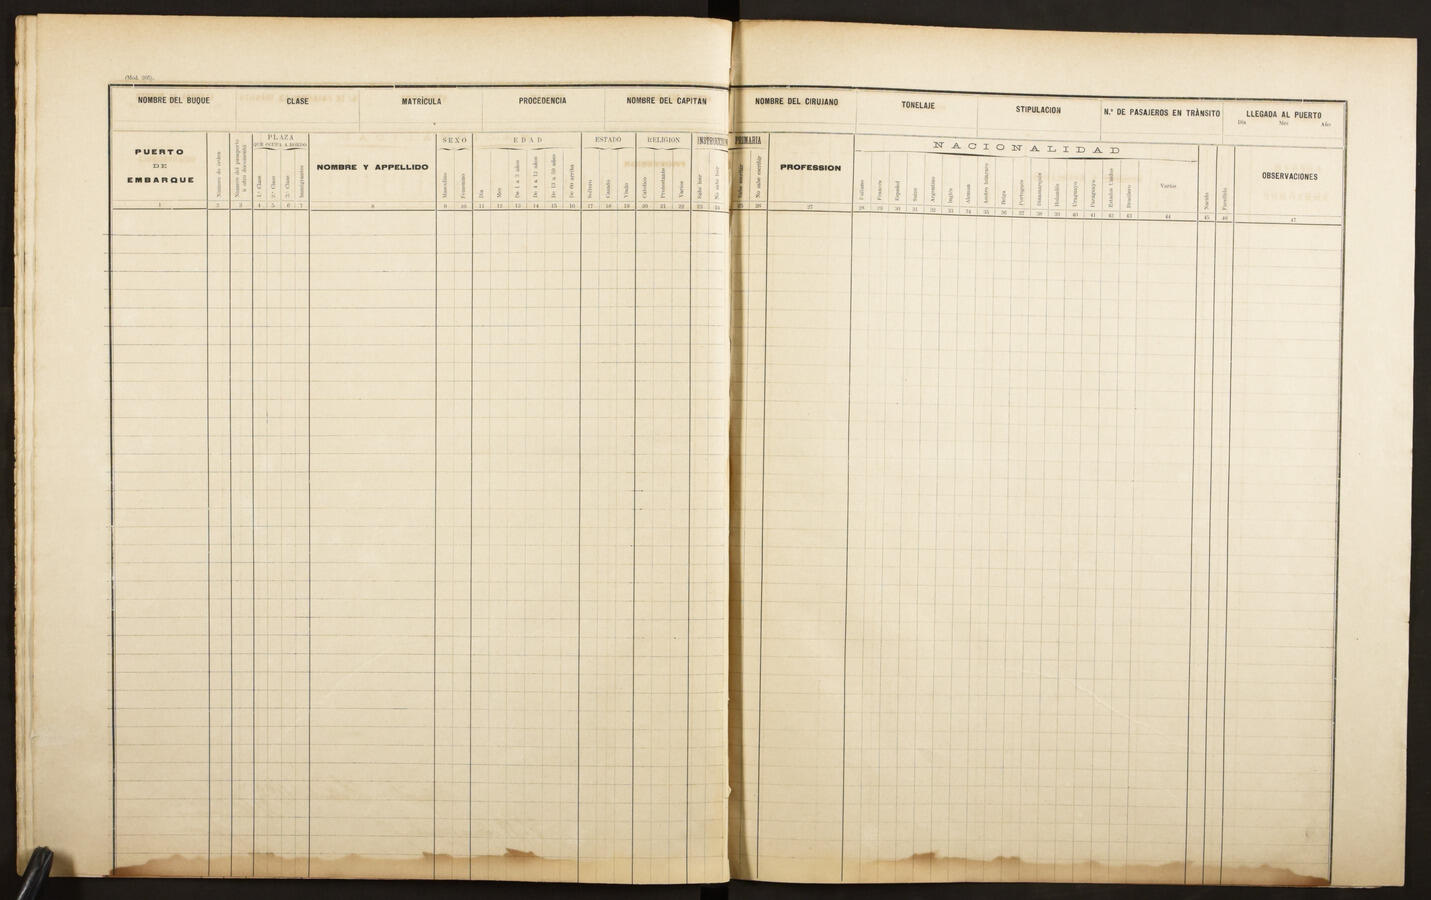 (Mod. 205).
NOMBRE DEL BUQUE CLASE MATRÍCULA PROCEDENCIA NOMBRE DEL CAPITAN NOMBRE DEL CIRUJANO TONELAJE STIPULACION N.º DE PASAJEROS EN TRÀNSITO LLEGADA AL PUERTO
Día Mes Año
PUERTO
DE
EMBARQUE
Número de orden
Número del pasaporte
u otro documento
PLAZA
QUE OCUPA A BORDO
1.ª Clase
2.ª Clase
3.ª Clase
Inmigrantes
NOMBRE Y APPELLIDO
SEXO
Masculino
Femenino
EDAD
Día
Mes
De 1 a 3 años
De 4 a 12 años
De 13 a 59 años
De 60 arriba
ESTADO
Soltero
Casado
Viudo
RELIGION
Católico
Protestante
Varios
INSTRUCCION PRIMARIA
Sabe leer
No sabe leer
Sabe escribir
No sabe escribir
PROFESSION
NACIONALIDAD
Italiano
Francés
Español
Suizo
Argentino
Inglés
Aleman
Austro húngaro
Belga
Portugues
Dinamarqués
Holandés
Uruguayo
Paraguayo
Estados Unidos
Brasilero
Varios
Nacido
Fallecido
OBSERVACIONES
1 2 3 4 5 6 7 8 9 10 11 12 13 14 15 16 17 18 19 20 21 22 23 24 25 26 27 28 29 30 31 32 33 34 35 36 37 38 39 40 41 42 43 44 45 46 47